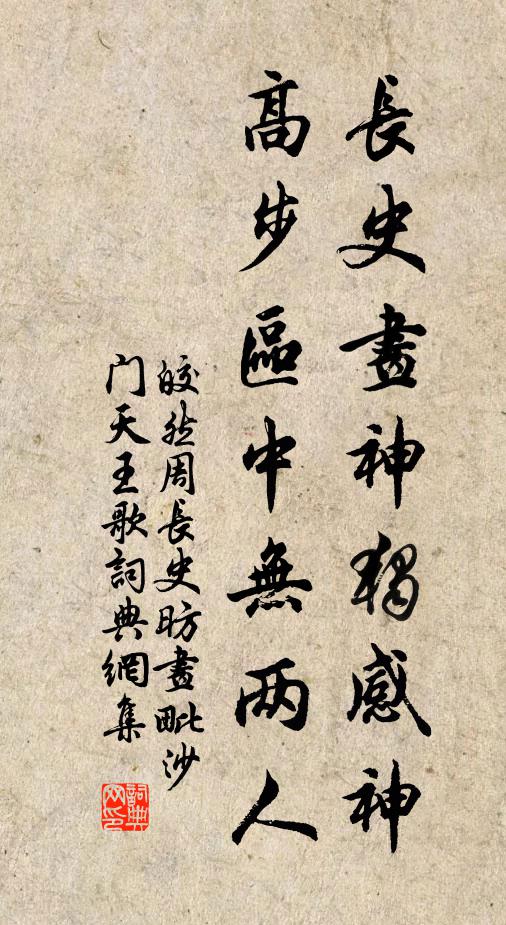 長史畫神獨感神
高步區中無两人
皎然周長史昉畫毗沙
门天王歌詞典網集
詞典网印